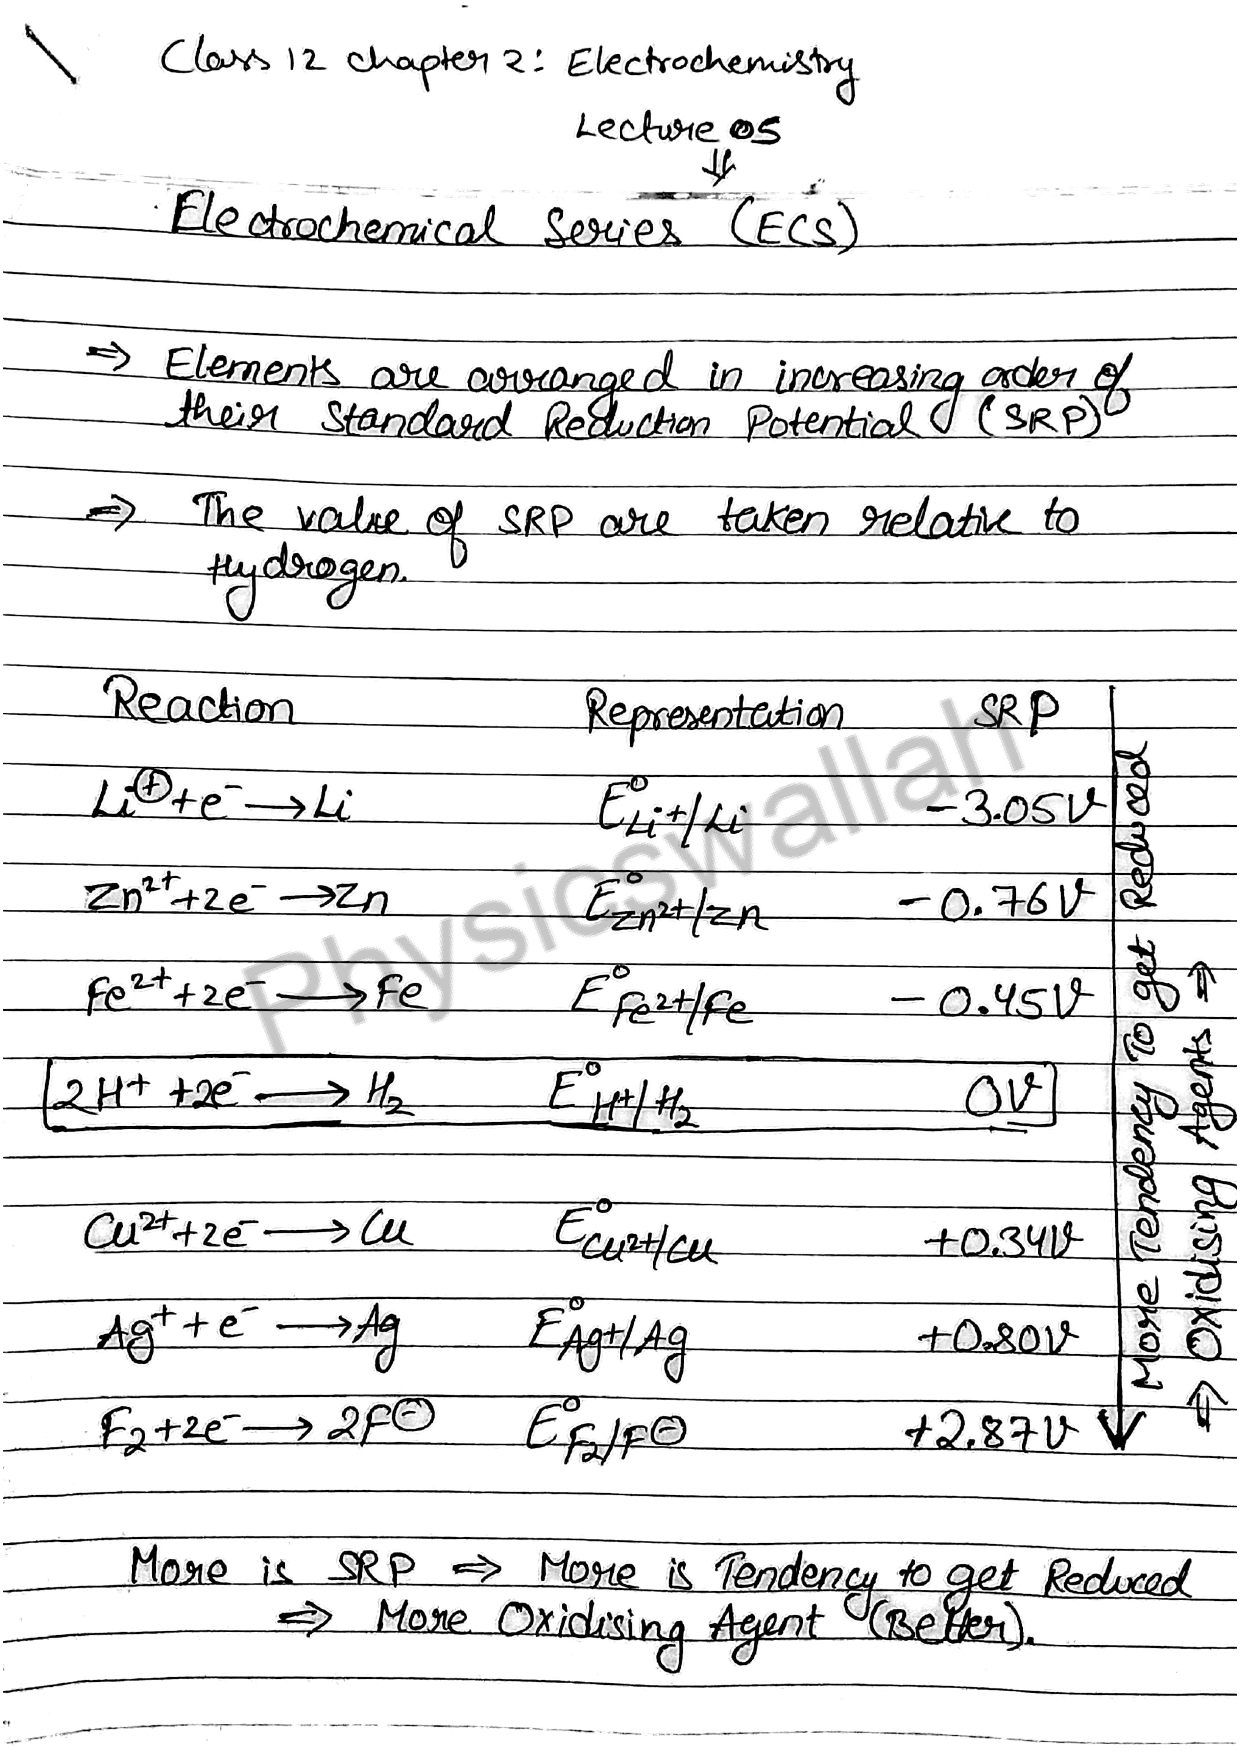 Class 12 chapter 2: Electrochemistry
Lecture 05
⇓
Electrochemical Series (ECS)
⇒ Elements are arranged in increasing order of
their Standard Reduction Potential (SRP)
⇒ The value of SRP are taken relative to
Hydrogen.
Reaction Representation SRP
Li⊕ + e⁻ → Li E°Li+/Li −3.05V
Zn²⁺ + 2e⁻ → Zn E°Zn2+/Zn −0.76V
Fe²⁺ + 2e⁻ → Fe E°Fe2+/Fe −0.45V
2H+ + 2e⁻ → H₂ E°H+/H₂ 0V
Cu²⁺ + 2e⁻ → Cu E°Cu2+/Cu +0.34V
Ag⁺ + e⁻ → Ag E°Ag+/Ag +0.80V
F₂ + 2e⁻ → 2F⊖ E°F₂/F⊖ +2.87V
More Tendency To get Reduced
⇒ Oxidising Agents ⇒
More is SRP ⇒ More is Tendency to get Reduced
⇒ More Oxidising Agent (Better).
Physicswallah